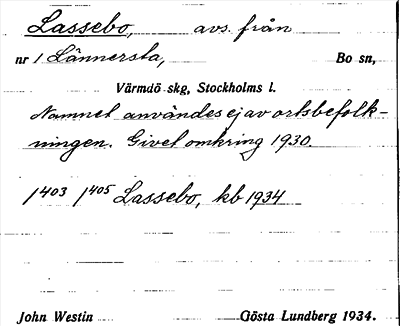 Lassebo, avs. från
nr 1 Lännersta, Bo sn,
Värmdö skg, Stockholms l.
Namnet användes ej av ortsbefolk-
ningen. Givet omkring 1930.
1403 1405 Lassebo, kb 1934
John Westin Gösta Lundberg 1934.